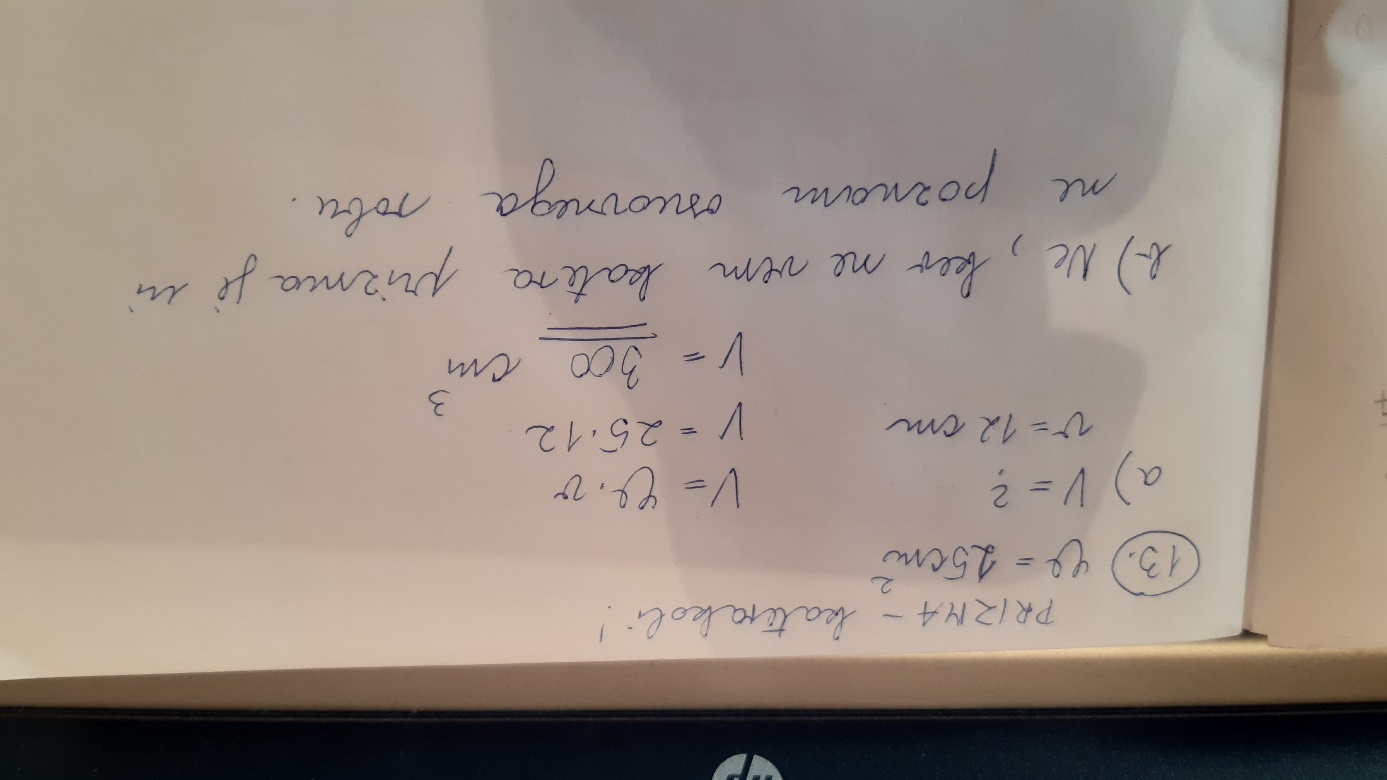 PRIZMA - katerakoli!
13. φ = 25 cm²
a) V = ? V = φ · v
v = 12 cm V = 25 · 12
V = 300 cm³
b) Ne, ker ne vem katera prizma je in
ne poznam osnovnega robu.
hp